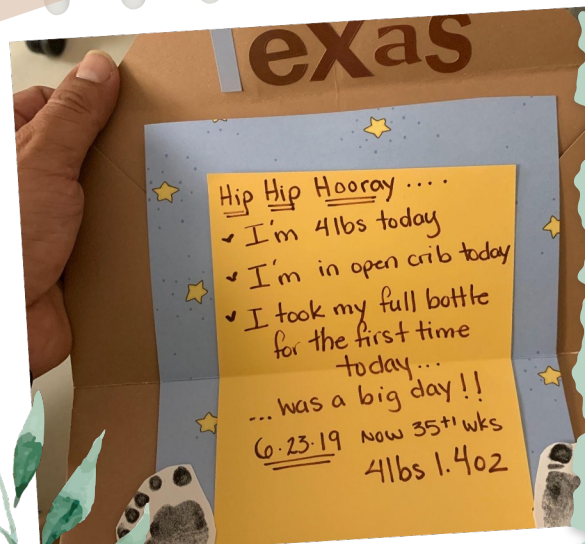 Texas
Hip Hip Hooray ....
✓ I'm 4lbs today
✓ I'm in open crib today
✓ I took my full bottle
for the first time
today...
...was a big day!!
6.23.19 Now 35+1 wks
4lbs 1.4oz